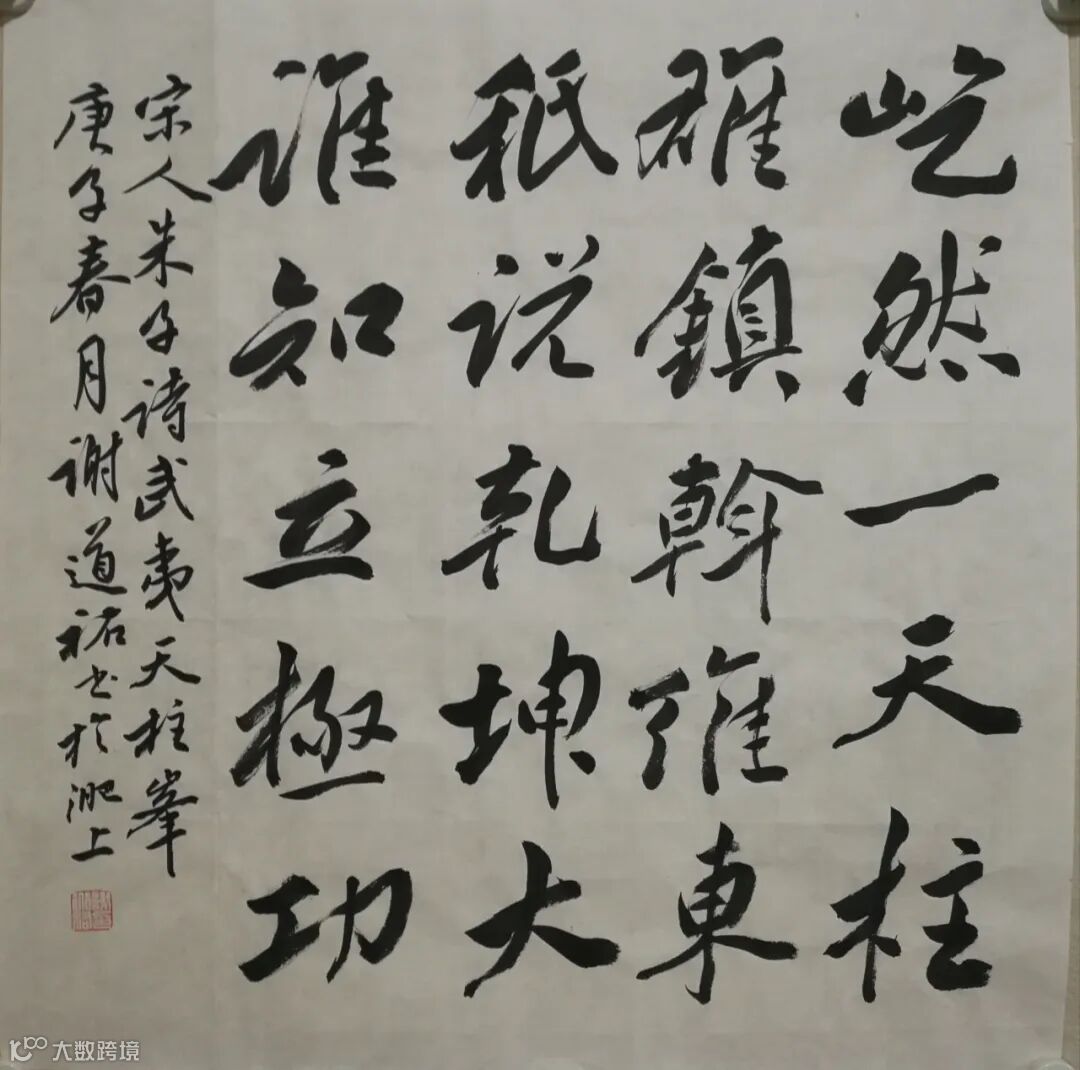 屹然一天柱
雄鎮斡維東
秖説乾坤大
誰知立極功
宋人朱子詩武夷天柱峯
庚子春月謝道祐书於淝上
大数跨境